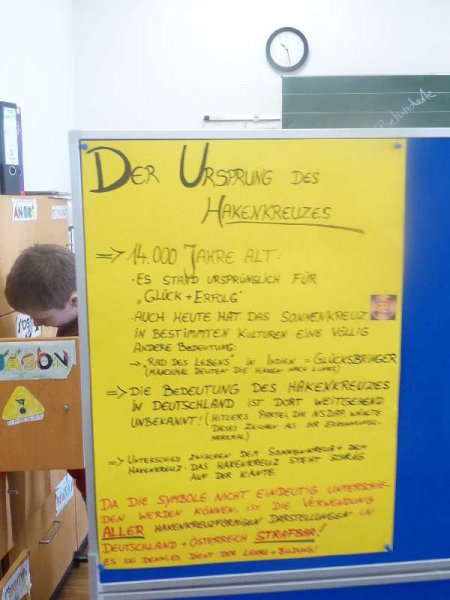 DER URSPRUNG DES
HAKENKREUZES
=> 14.000 JAHRE ALT
· ES STAND URSPRÜNGLICH FÜR
„GLÜCK + ERFOLG"
· AUCH HEUTE HAT DAS SONNENKREUZ
IN BESTIMMTEN KULTUREN EINE VÖLLIG
ANDERE BEDEUTUNG:
→ „RAD DES LEBENS" IN INDIEN = GLÜCKSBRINGER
(MANCHMAL DEUTEN DIE HAKEN NACH LINKS)
=> DIE BEDEUTUNG DES HAKENKREUZES
IN DEUTSCHLAND IST DORT WEITGEHEND
UNBEKANNT! (HITLERS PARTEI, DIE NSDAP, WÄHLTE
DIESES ZEICHEN ALS IHR ERKENNUNGS-
MERKMAL)
=> UNTERSCHIED ZWISCHEN DEM SONNENKREUZ + DEM
HAKENKREUZ: DAS HAKENKREUZ STEHT SCHRÄG
AUF DER KANTE
DA DIE SYMBOLE NICHT EINDEUTIG UNTERSCHIE-
DEN WERDEN KÖNNEN, IST DIE VERWENDUNG
ALLER HAKENKREUZFÖRMIGEN DARSTELLUNGEN IN
DEUTSCHLAND + ÖSTERREICH STRAFBAR!
ES SEI DENN, ES DIENT DER LEHRE + BILDUNG!